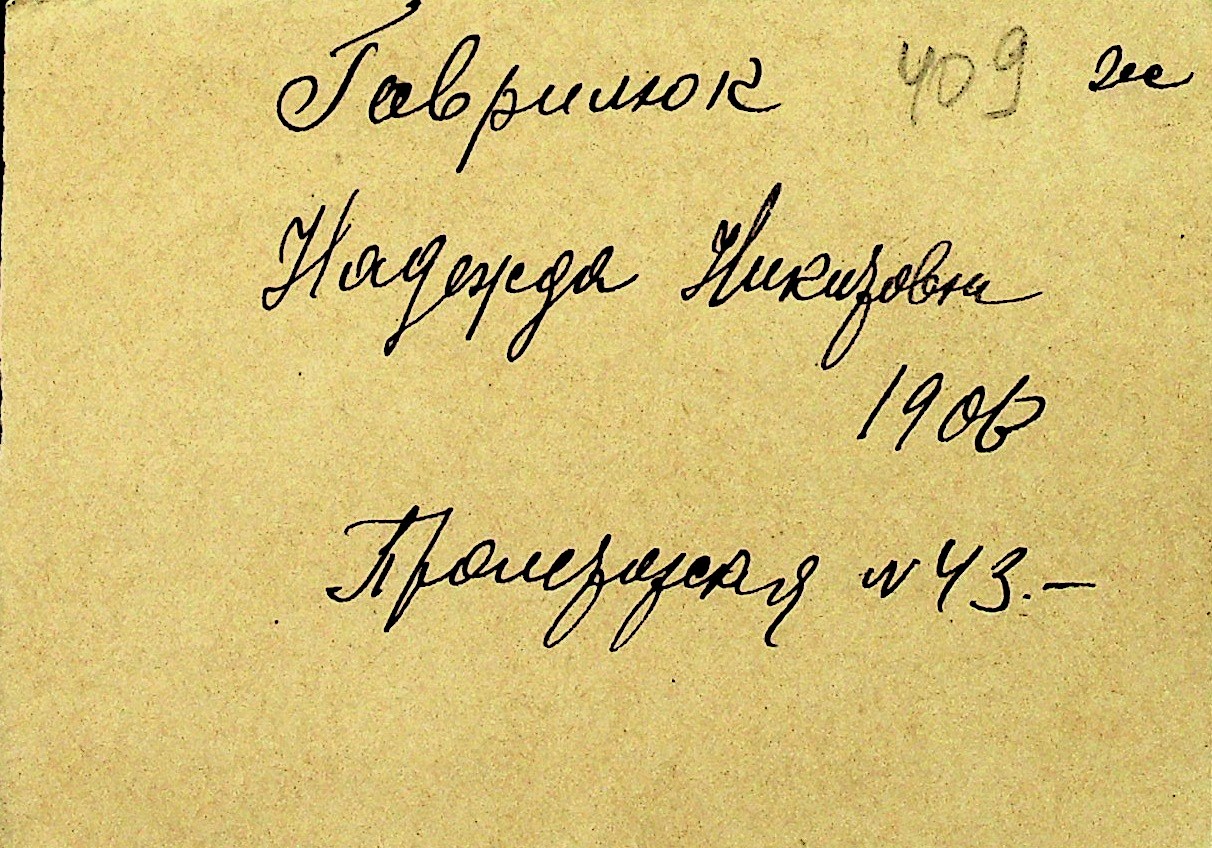 Гаврилюк 409
Надежда Никитовна
1906
Пролетарская № 43.—